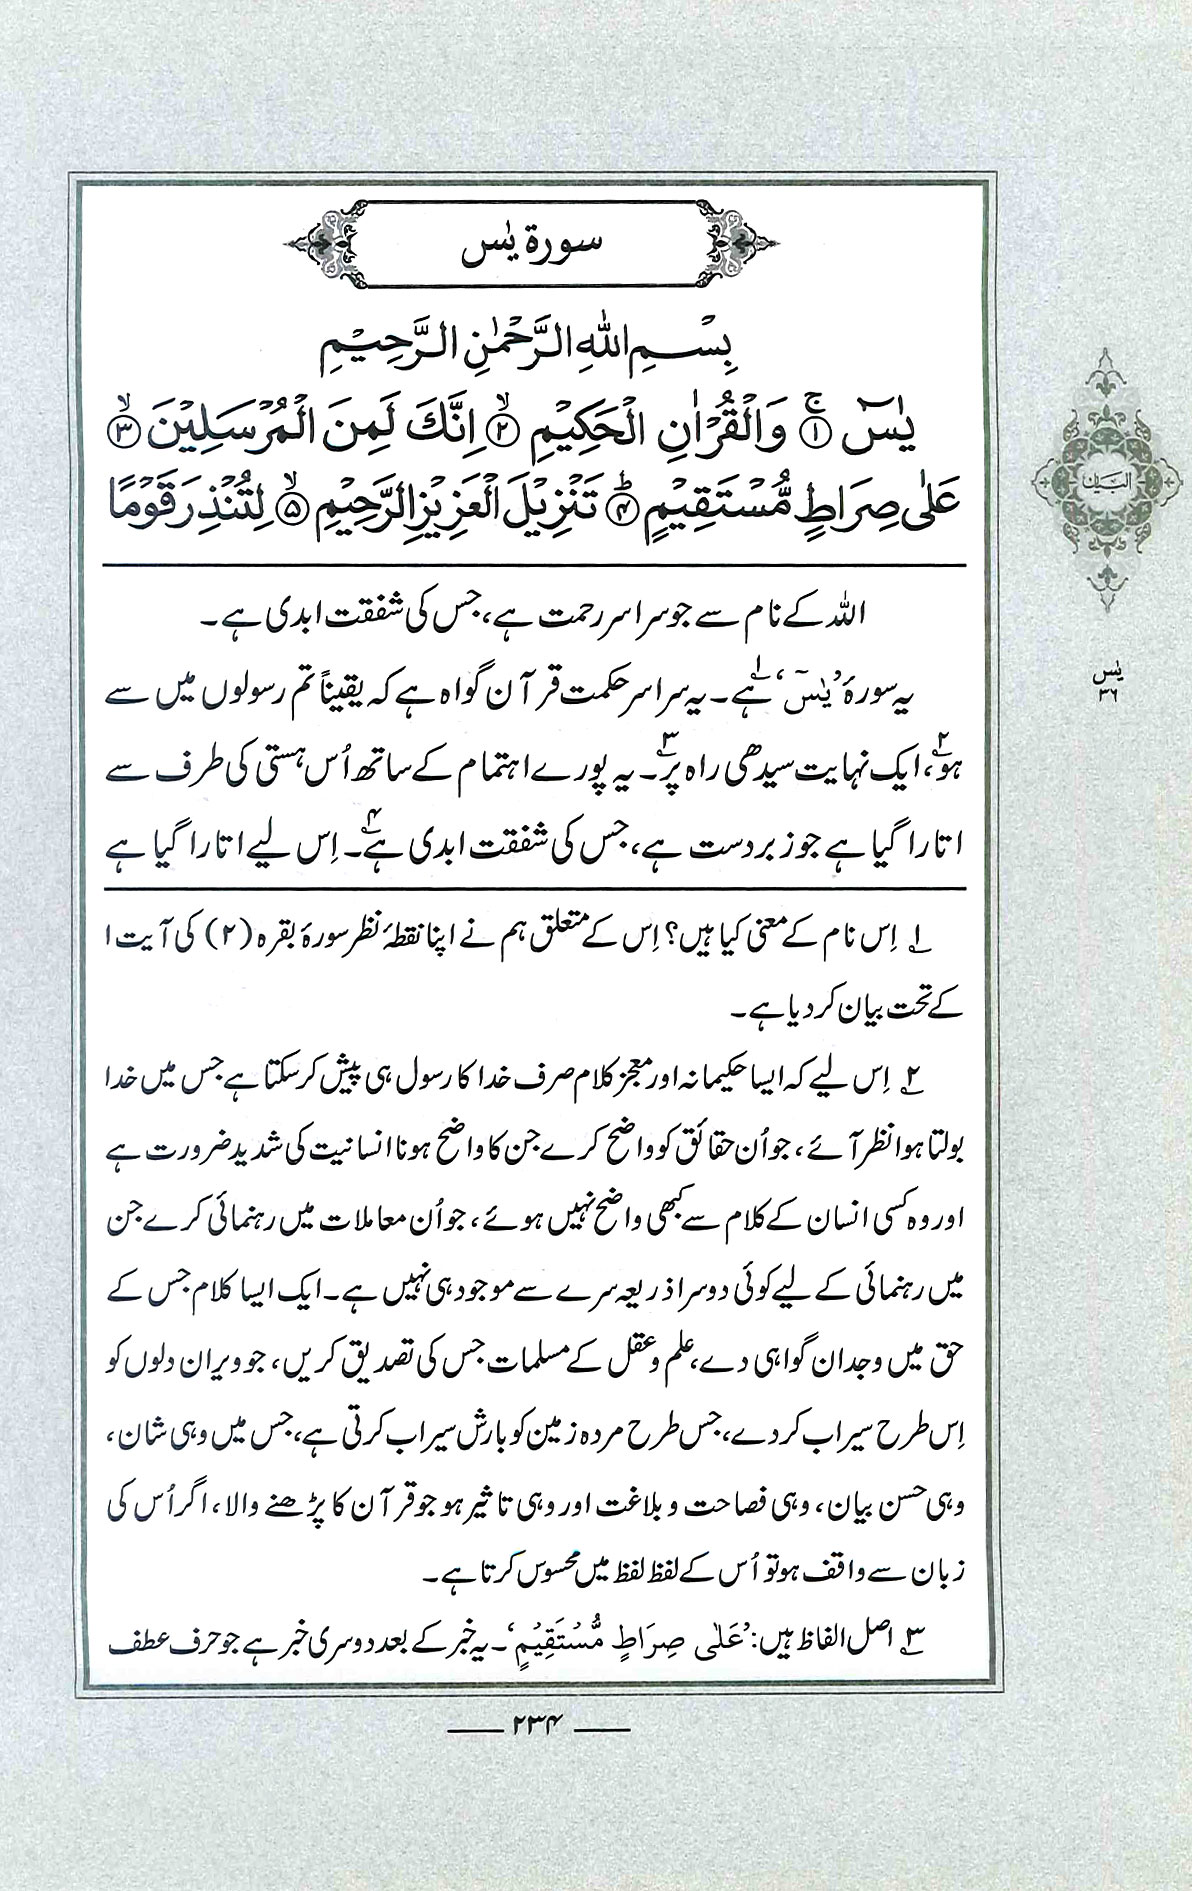 سورة يٰس
بِسْمِ اللهِ الرَّحْمٰنِ الرَّحِيْمِ
يٰسٓ ۚ﴿۱﴾ وَالْقُرْاٰنِ الْحَكِيْمِ ۙ﴿۲﴾ اِنَّكَ لَمِنَ الْمُرْسَلِيْنَ ۙ﴿۳﴾
عَلٰى صِرَاطٍ مُّسْتَقِيْمٍ ؕ﴿۴﴾ تَنْزِيْلَ الْعَزِيْزِ الرَّحِيْمِ ۙ﴿۵﴾ لِتُنْذِرَ قَوْمًا
اللہ کے نام سے جو سراسر رحمت ہے، جس کی شفقت ابدی ہے۔
یہ سورۂ ’یٰسٓ‘ ہے۱؎۔ یہ سراسر حکمت قرآن گواہ ہے کہ یقیناً تم رسولوں میں سے
ہو۲؎، ایک نہایت سیدھی راہ پر۳؎۔ یہ پورے اہتمام کے ساتھ اُس ہستی کی طرف سے
اتارا گیا ہے جو زبردست ہے، جس کی شفقت ابدی ہے۴؎۔ اِس لیے اتارا گیا ہے
۱؎ اِس نام کے معنی کیا ہیں؟ اِس کے متعلق ہم نے اپنا نقطۂ نظر سورۂ بقرہ (۲) کی آیت ا
کے تحت بیان کر دیا ہے۔
۲؎ اِس لیے کہ ایسا حکیمانہ اور معجز کلام صرف خدا کا رسول ہی پیش کر سکتا ہے جس میں خدا
بولتا ہوا نظر آئے، جو اُن حقائق کو واضح کرے جن کا واضح ہونا انسانیت کی شدید ضرورت ہے
اور وہ کسی انسان کے کلام سے کبھی واضح نہیں ہوئے، جو اُن معاملات میں رہنمائی کرے جن
میں رہنمائی کے لیے کوئی دوسرا ذریعہ سرے سے موجود ہی نہیں ہے۔ ایک ایسا کلام جس کے
حق میں وجدان گواہی دے، علم و عقل کے مسلمات جس کی تصدیق کریں، جو ویران دلوں کو
اِس طرح سیراب کر دے، جس طرح مردہ زمین کو بارش سیراب کرتی ہے، جس میں وہی شان،
وہی حسن بیان، وہی فصاحت و بلاغت اور وہی تاثیر ہو جو قرآن کا پڑھنے والا، اگر اُس کی
زبان سے واقف ہو تو اُس کے لفظ لفظ میں محسوس کرتا ہے۔
۳؎ اصل الفاظ ہیں: ’عَلٰى صِرَاطٍ مُّسْتَقِيْمٍ‘۔ یہ خبر کے بعد دوسری خبر ہے جو حرف عطف
۲۳۴
البیان
یٰس
۳۶